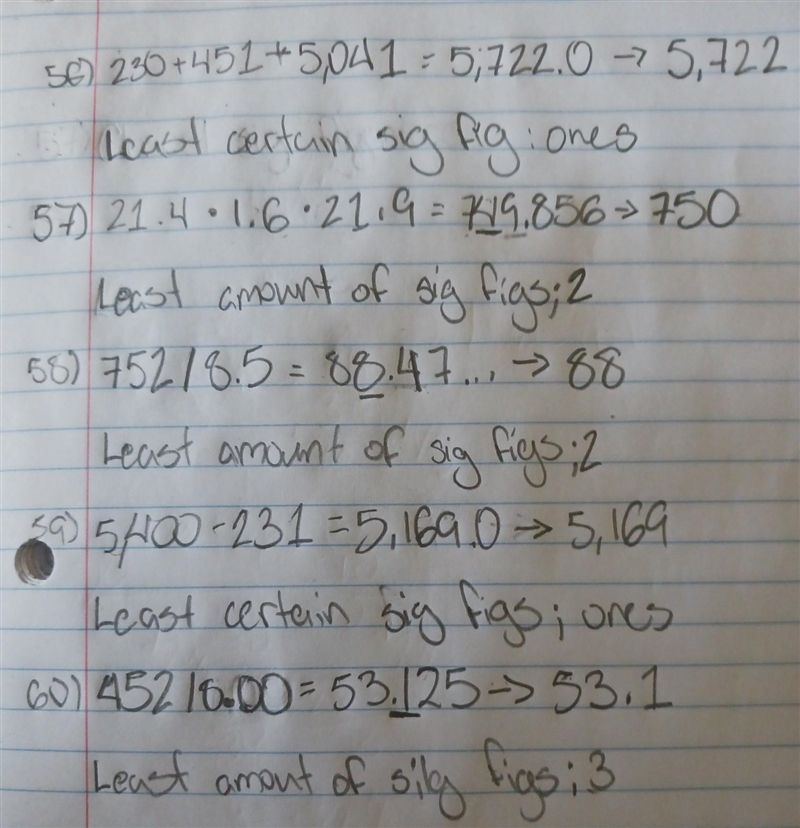 56) 230+451+5,041 = 5,722.0 → 5,722
Least certain sig fig: ones
57) 21.4 · 1.6 · 21.9 = 749.856 → 750
Least amount of sig figs; 2
58) 752/8.5 = 88.47... → 88
Least amount of sig figs; 2
59) 5,400 - 231 = 5,169.0 → 5,169
Least certain sig figs; ones
60) 452/8.00 = 53.125 → 53.1
Least amout of silg figs; 3